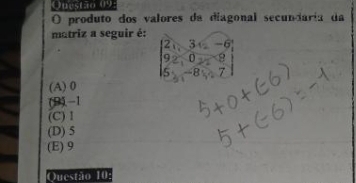 Questão 09:
O produto dos valores da diagonal secundaria da
matriz a seguir é:
2 3 -6
9 0 8
5 -8 7
(A) 0
(B) -1
(C) 1
(D) 5
(E) 9
5+0+(-6)
5+(-6)=-1
Questão 10: